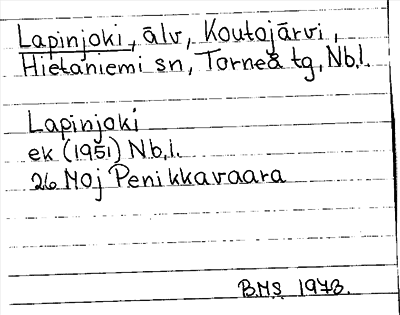 Lapinjoki, älv, Koutojärvi,
Hietaniemi sn, Torneå tg, Nb.l.
Lapinjoki
ek (1951) Nb.l.
26 Moj Penikkavaara
B.M.S. 1973.